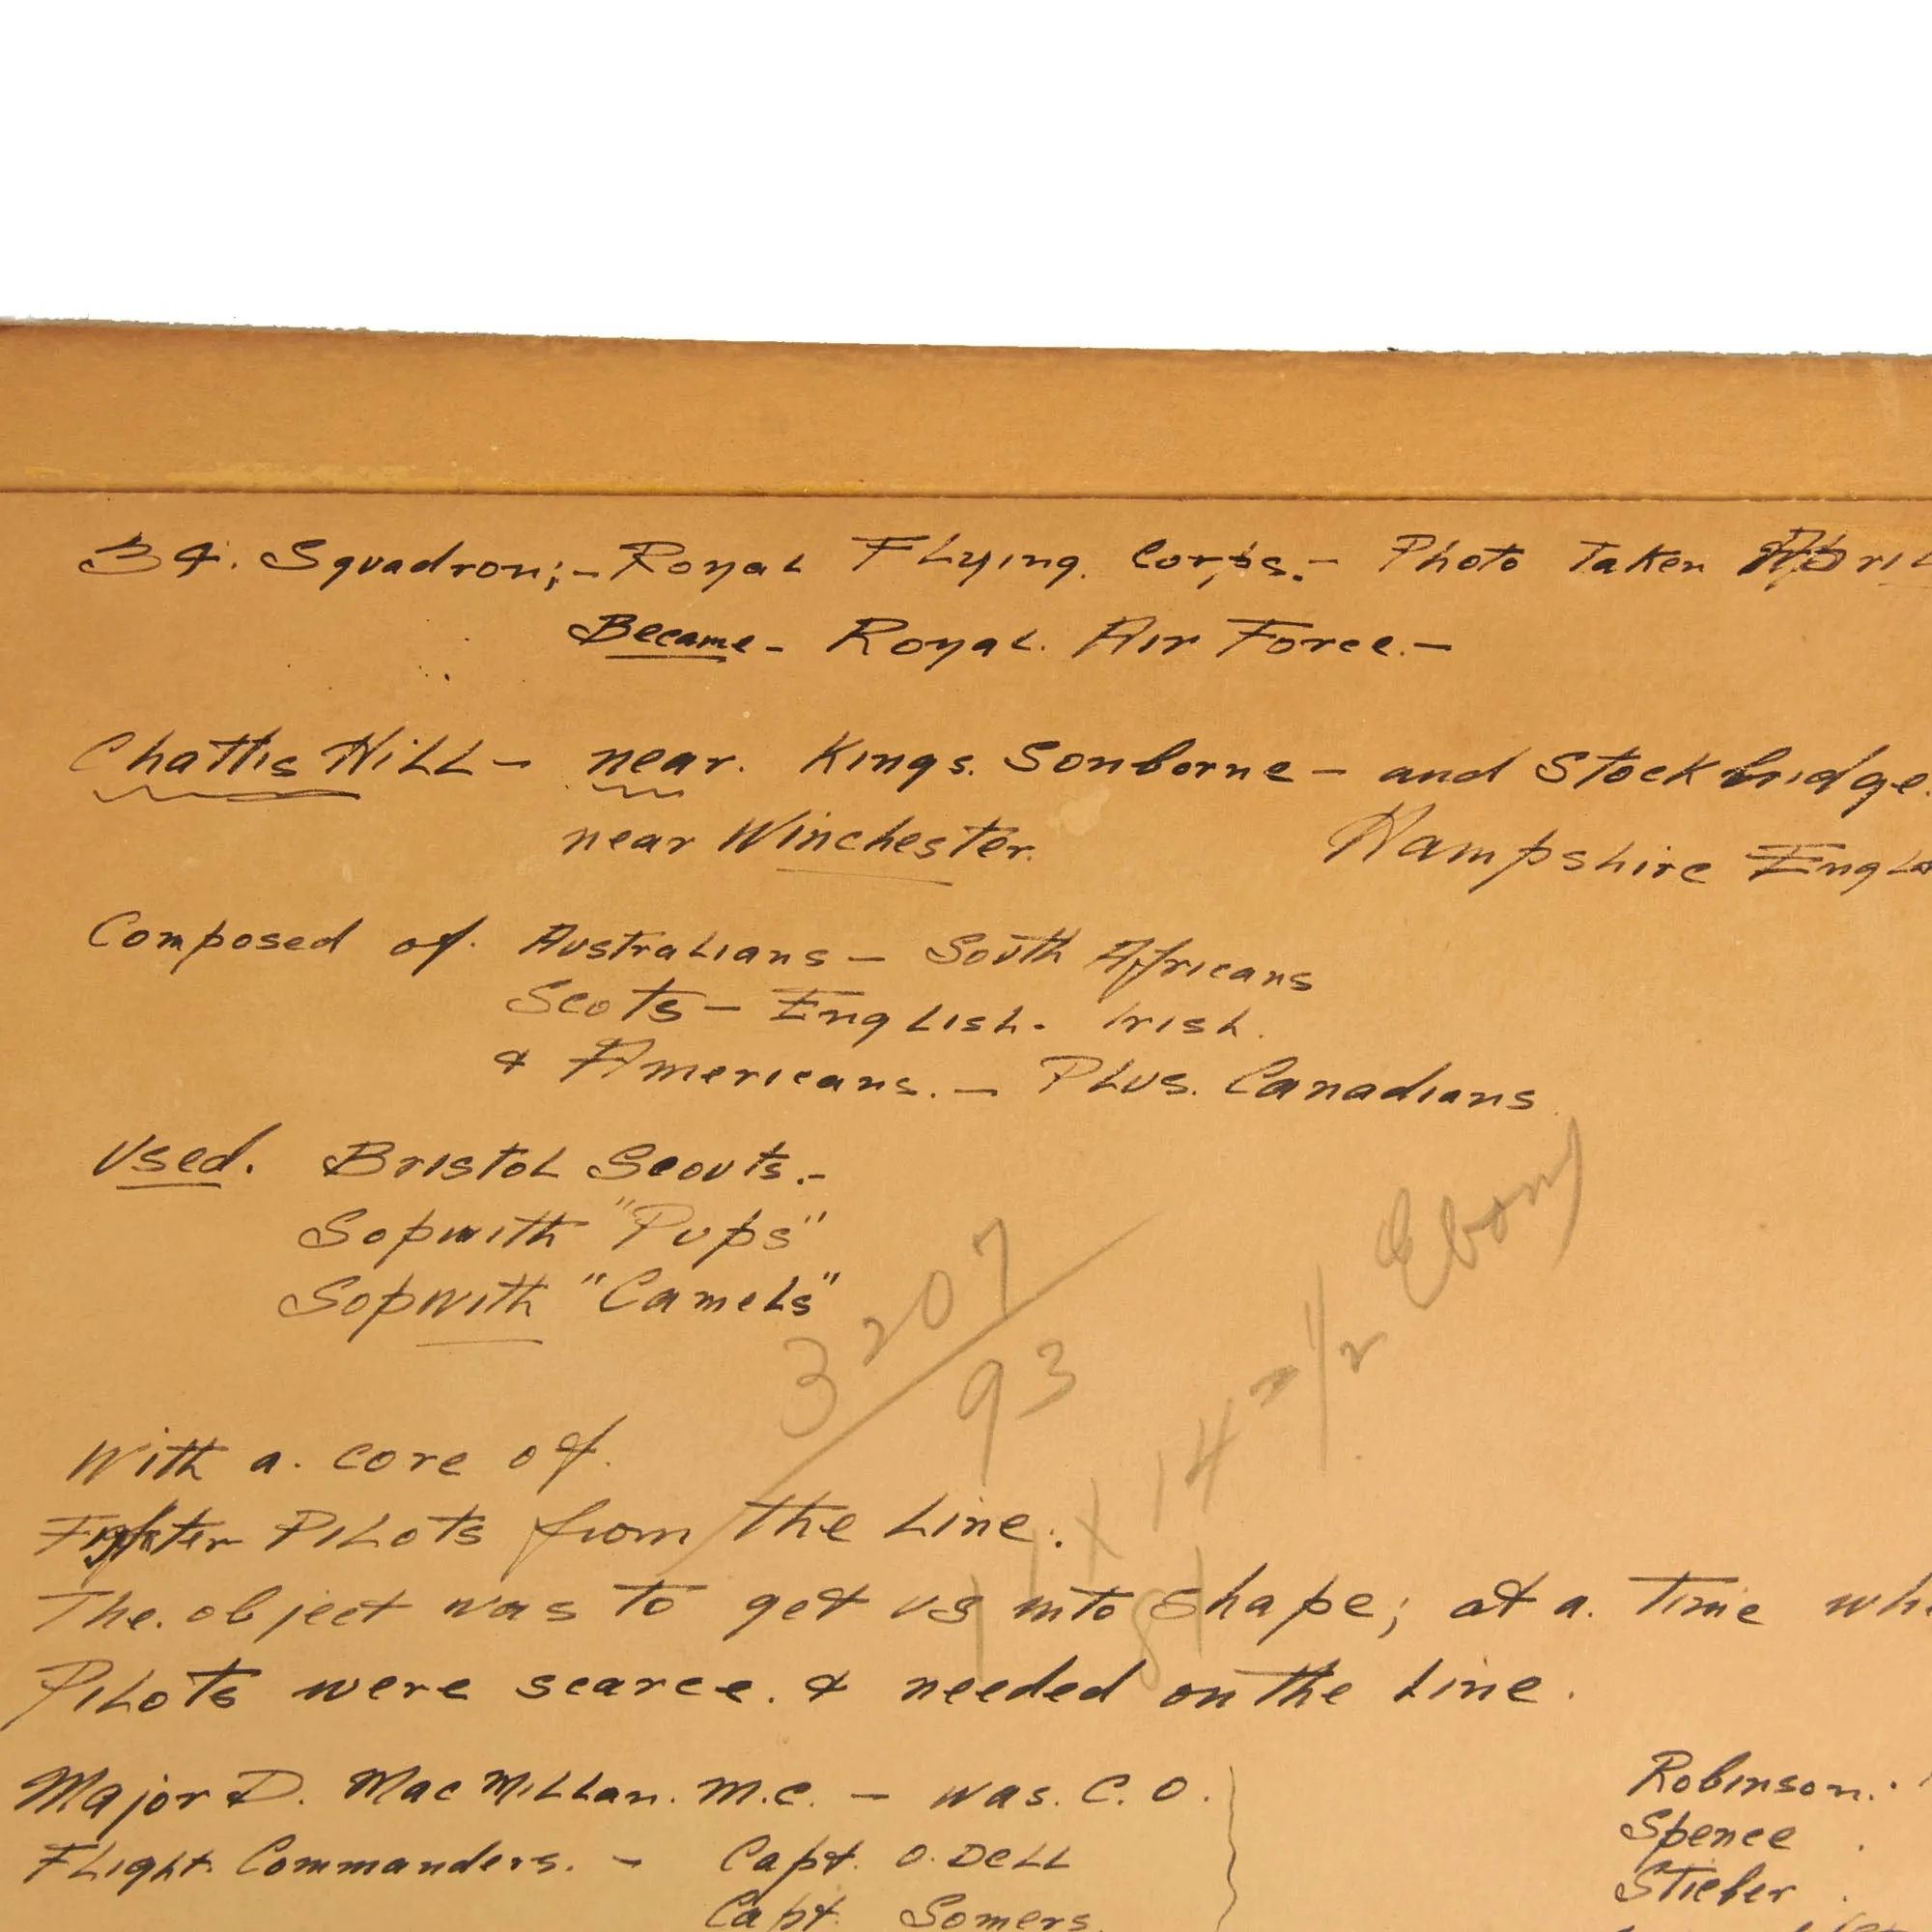 34. Squadron;- Royal Flying. Corps.- Photo Taken April
Became - Royal. Air Force.-
Chattis Hill - near. Kings. Sonborne - and Stockbridge.
near Winchester.
Hampshire Engla
Composed of. Australians - South Africans
Scots - English. Irish.
& Americans. - Plus. Canadians
Used. Bristol Scouts.-
Sopwith "Pups"
Sopwith "Camels"
3207/93
11 x 14 1/2 Ebony
81
With a. core of.
Fighter Pilots from the Line.
The. object was to get us into shape; at a. Time whe
Pilots were scarce. & needed on the Line.
Major D. MacMillan. M.C. - was. C.O.
Flight. Commanders. - Capt. O.Dell
Capt. Somers.
Robinson.
Spence
Stieber